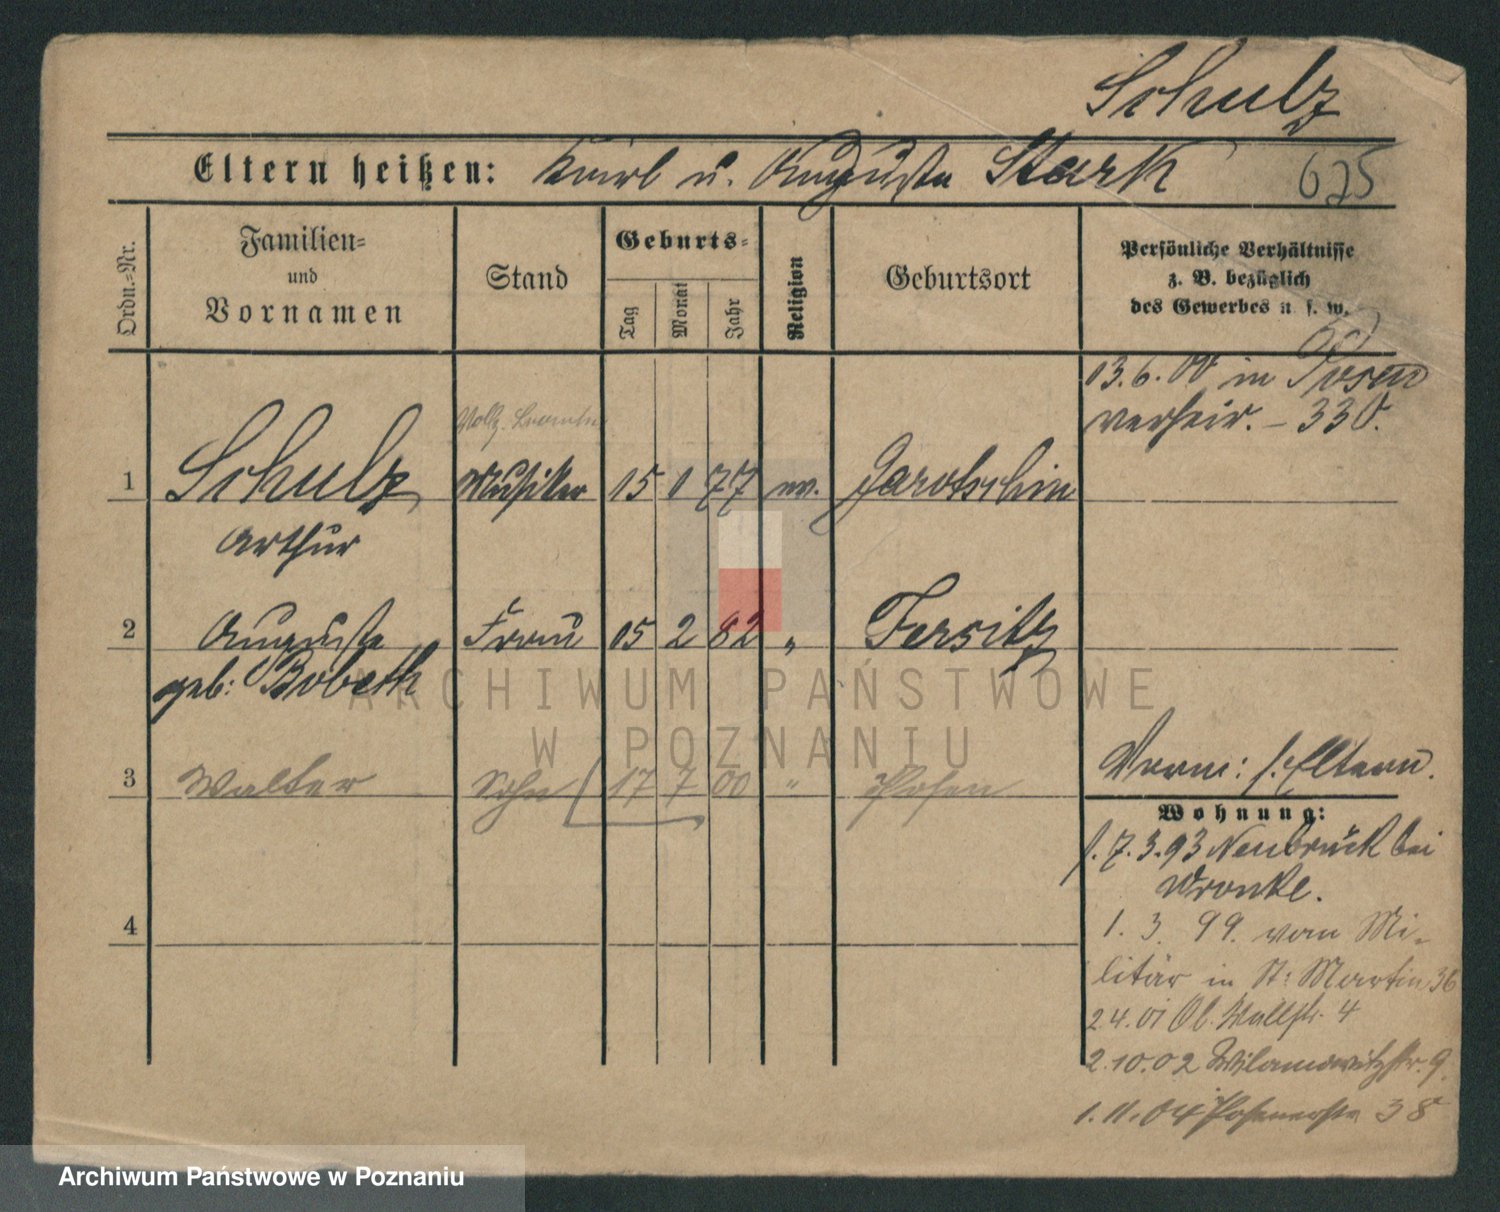 Schulz
Eltern heißen: Karl u. Auguste Stark 675
Ordn.-Nr.
Familien-
und
Vornamen
Stand
Geburts-
Tag
Monat
Jahr
Religion
Geburtsort
Persönliche Verhältnisse
z. B. bezüglich
des Gewerbes u. s. w.
13.6.00 in Posen
verheir. – 330.
1 Schulz Musiker 15 1 77 ev. Jarotschin
Arthur
2 Auguste Frau 15 2 82 " Fersitz
geb: Bobeth
3 Walter Sohn 17 7 00 " Posen
Vorm: s. Eltern.
Wohnung:
1.7.3.93 Neubrück bei
Wronke.
4
1. 3. 99. vom Mi-
litär in St: Martin 36
24.01 Ob. Wallstr. 4
2.10.02 Wilamowitzstr. 9
1.11.04 Posenerstr 38
ARCHIWUM PAŃSTWOWE
W POZNANIU
Archiwum Państwowe w Poznaniu